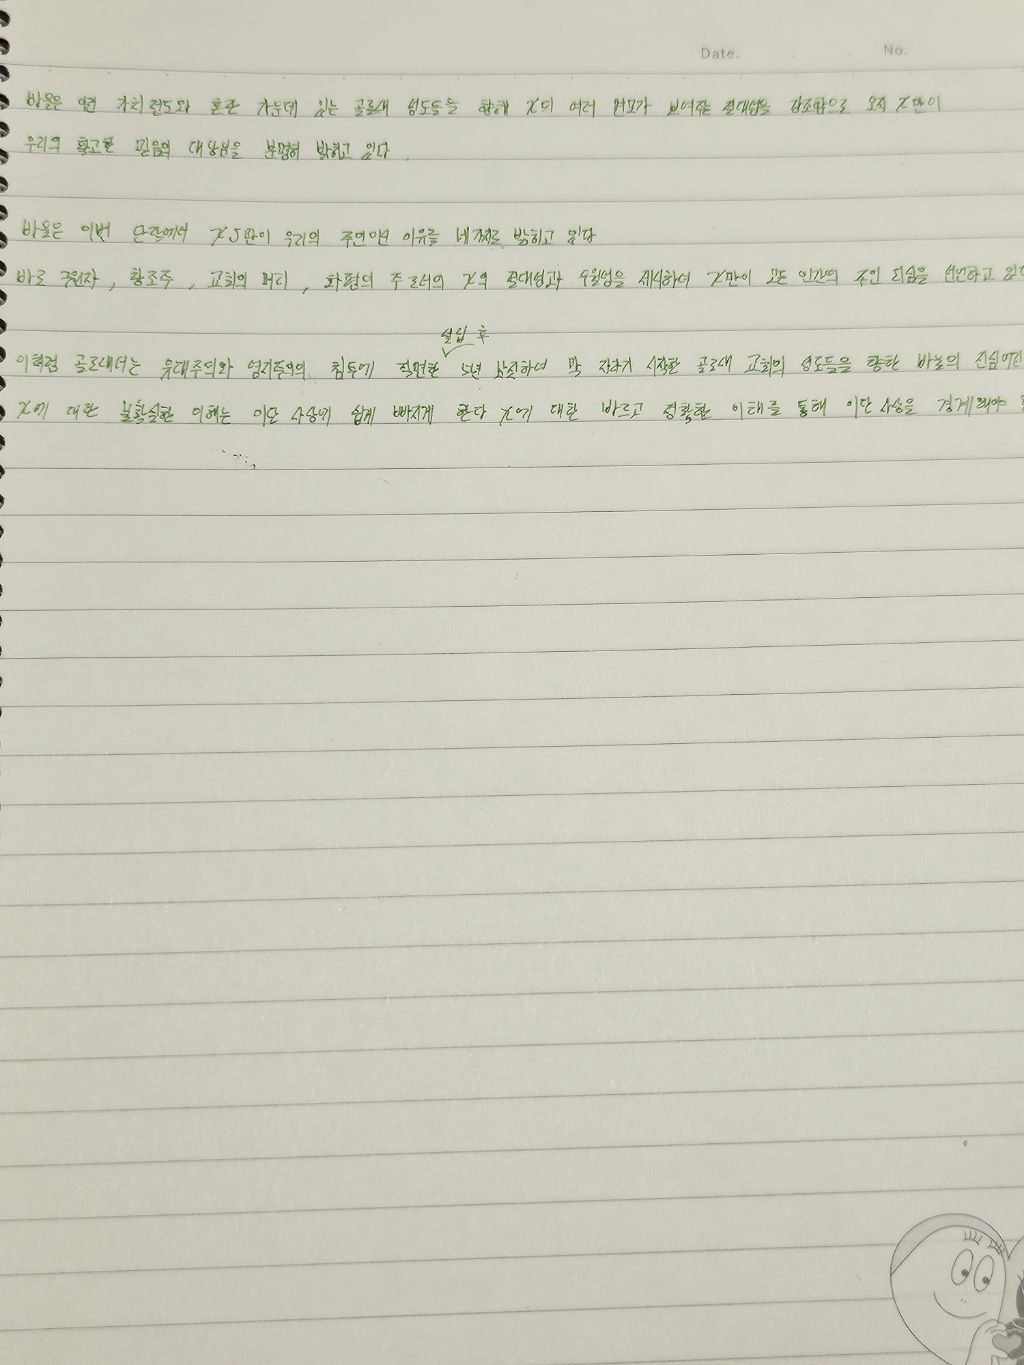 Date. No.
바울은 가치 전도와 혼란 가운데 있는 골로새 성도들을 향해 X의 여러 면모가 보여주는 절대성을 강조함으로 오직 X만이
우리의 확고한 믿음의 대상임을 분명히 밝히고 있다.
바울은 이번 단락에서 XJ만이 우리의 주인이신 이유를 네가지로 밝히고 있다
바로 구원자, 창조주, 교회의 머리, 화평의 주로서의 X의 절대성과 우월성을 제시하여 X만이 모든 인간의 주인 되심을 선언하고
설립 후
이처럼 골로새서는 유대주의와 영지주의의 침투에 직면한 하여 막 자라기 시작한 골로새 교회의 성도들을 향한 바울의
X에 대한 불확실한 이해는 이단 사상에 쉽게 빠지게 한다 X에 대한 바르고 정확한 이해를 통해 이단 사상을 경계해야